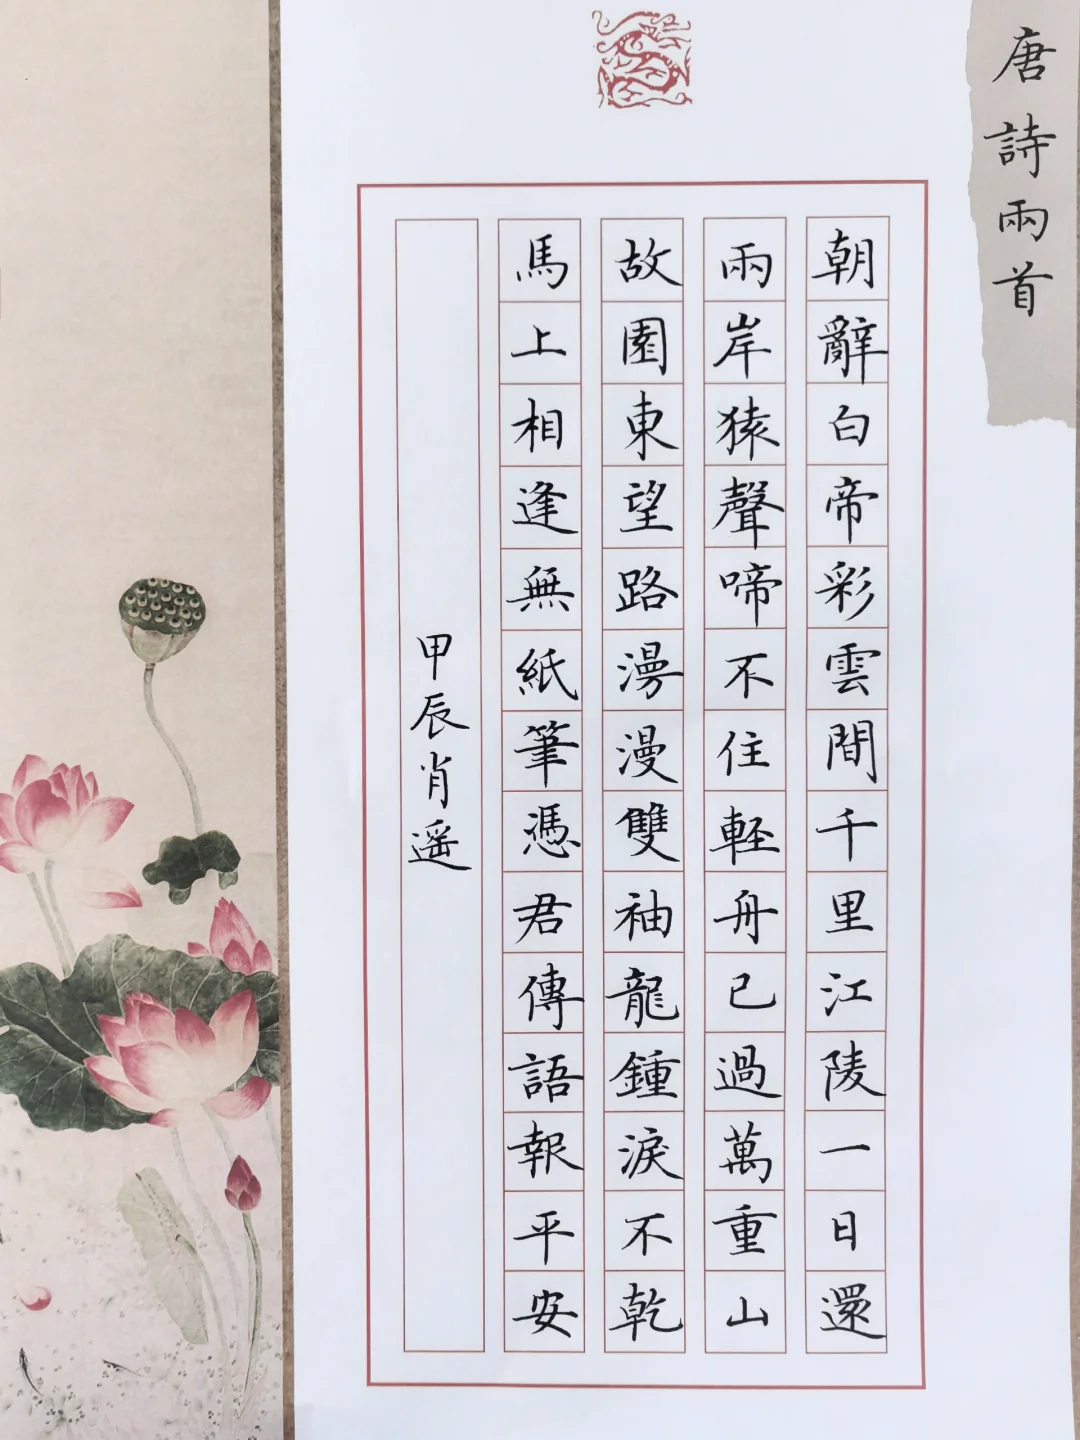 唐詩兩首
朝辭白帝彩雲間千里江陵一日還
兩岸猿聲啼不住軽舟已過萬重山
故園東望路漫漫雙袖龍鍾淚不乾
馬上相逢無紙筆憑君傳語報平安
甲辰肖遥